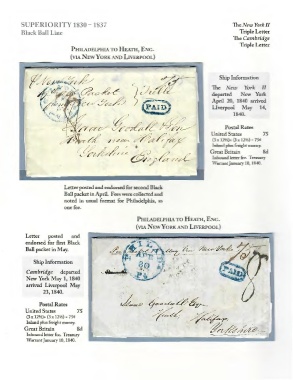 SUPERIORITY 1830 – 1837
Black Ball Line
The New York II
Triple Letter
The Cambridge
Triple Letter
PHILADELPHIA TO HEATH, ENG.
(VIA NEW YORK AND LIVERPOOL)
PAID
Isaac Goodall Esq
Heath near Halifax
Yorkshire
England
Ship Information
The New York II
departed New York
April 20, 1840 arrived
Liverpool May 14,
1840.
Postal Rates
United States 75
Inland plus freight money.
Great Britain 8d
Inbound letter fee. Treasury
Warrant January 10, 1840.
Letter posted and endorsed for second Black
Ball packet in April. Fees were collected and
noted in usual format for Philadelphia, as
one fee.
PHILADELPHIA TO HEATH, ENG.
(VIA NEW YORK AND LIVERPOOL)
Letter posted and
endorsed for first Black
Ball packet in May.
Ship Information
Cambridge departed
New York May 1, 1840
arrived Liverpool May
23, 1840.
Postal Rates
United States 75
Inland plus freight money.
Great Britain 8d
Inbound letter fee. Treasury
Warrant January 10, 1840.
APR
30
PA
PAID
Heath Halifax
Yorkshire